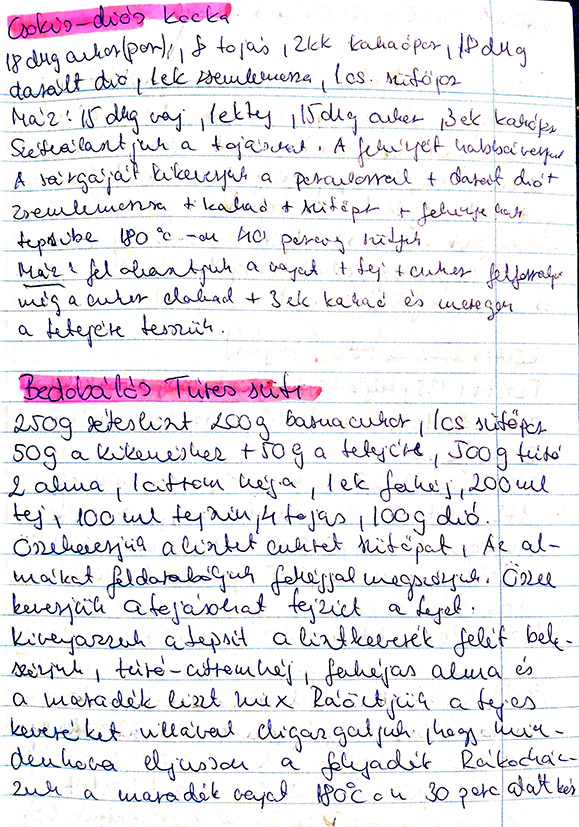 Csokis-diós kocka
18 dkg cukor(por), 8 tojás, 2kk kakaópor, 18 dkg
darált dió, 1ek zsemlemorzsa, 1cs. sütőpor
Máz: 15 dkg vaj, 1ek tej, 15 dkg cukor, 3ek kakaópor
Szétválasztjuk a tojásokat. A fehérjét habbá verjük
A sárgáját kikeverjük a porcukorral + darált diót
zsemlemorzsa + kakaó + sütőpor + fehérje hab
tepsibe 180°C-on 40 percig sütjük
Máz: felolvasztjuk a vajat + tej + cukor felforraljuk
míg a cukor elolvad + 3ek kakaó és melegen
a tetejére tesszük.
Bedobálós Túrós süti
250g rétesliszt 200g barnacukor, 1cs sütőpor
50g a kikenéshez + 50g a tetejére, 500g túró
2 alma, 1citrom héja, 1ek fahéj, 200ml
tej, 100ml tejszín, 4 tojás, 100g dió.
Összekeverjük a lisztet cukrot sütőport, Az al-
mákat feldaraboljuk fahéjjal megszórjuk. Össze
keverjük a tojásokat tejszínt a tejet.
Kivajazzuk a tepsit a lisztkeverék felét bele
szórjuk, túró-citromhéj, fahéjas alma és
a maradék liszt mix Ráöntjük a tejes
keveréket villával eligazgatjuk, hogy min-
denhova eljusson a folyadék Rákockáz-
zuk a maradék vajat 180°C on 30 perc alatt kész